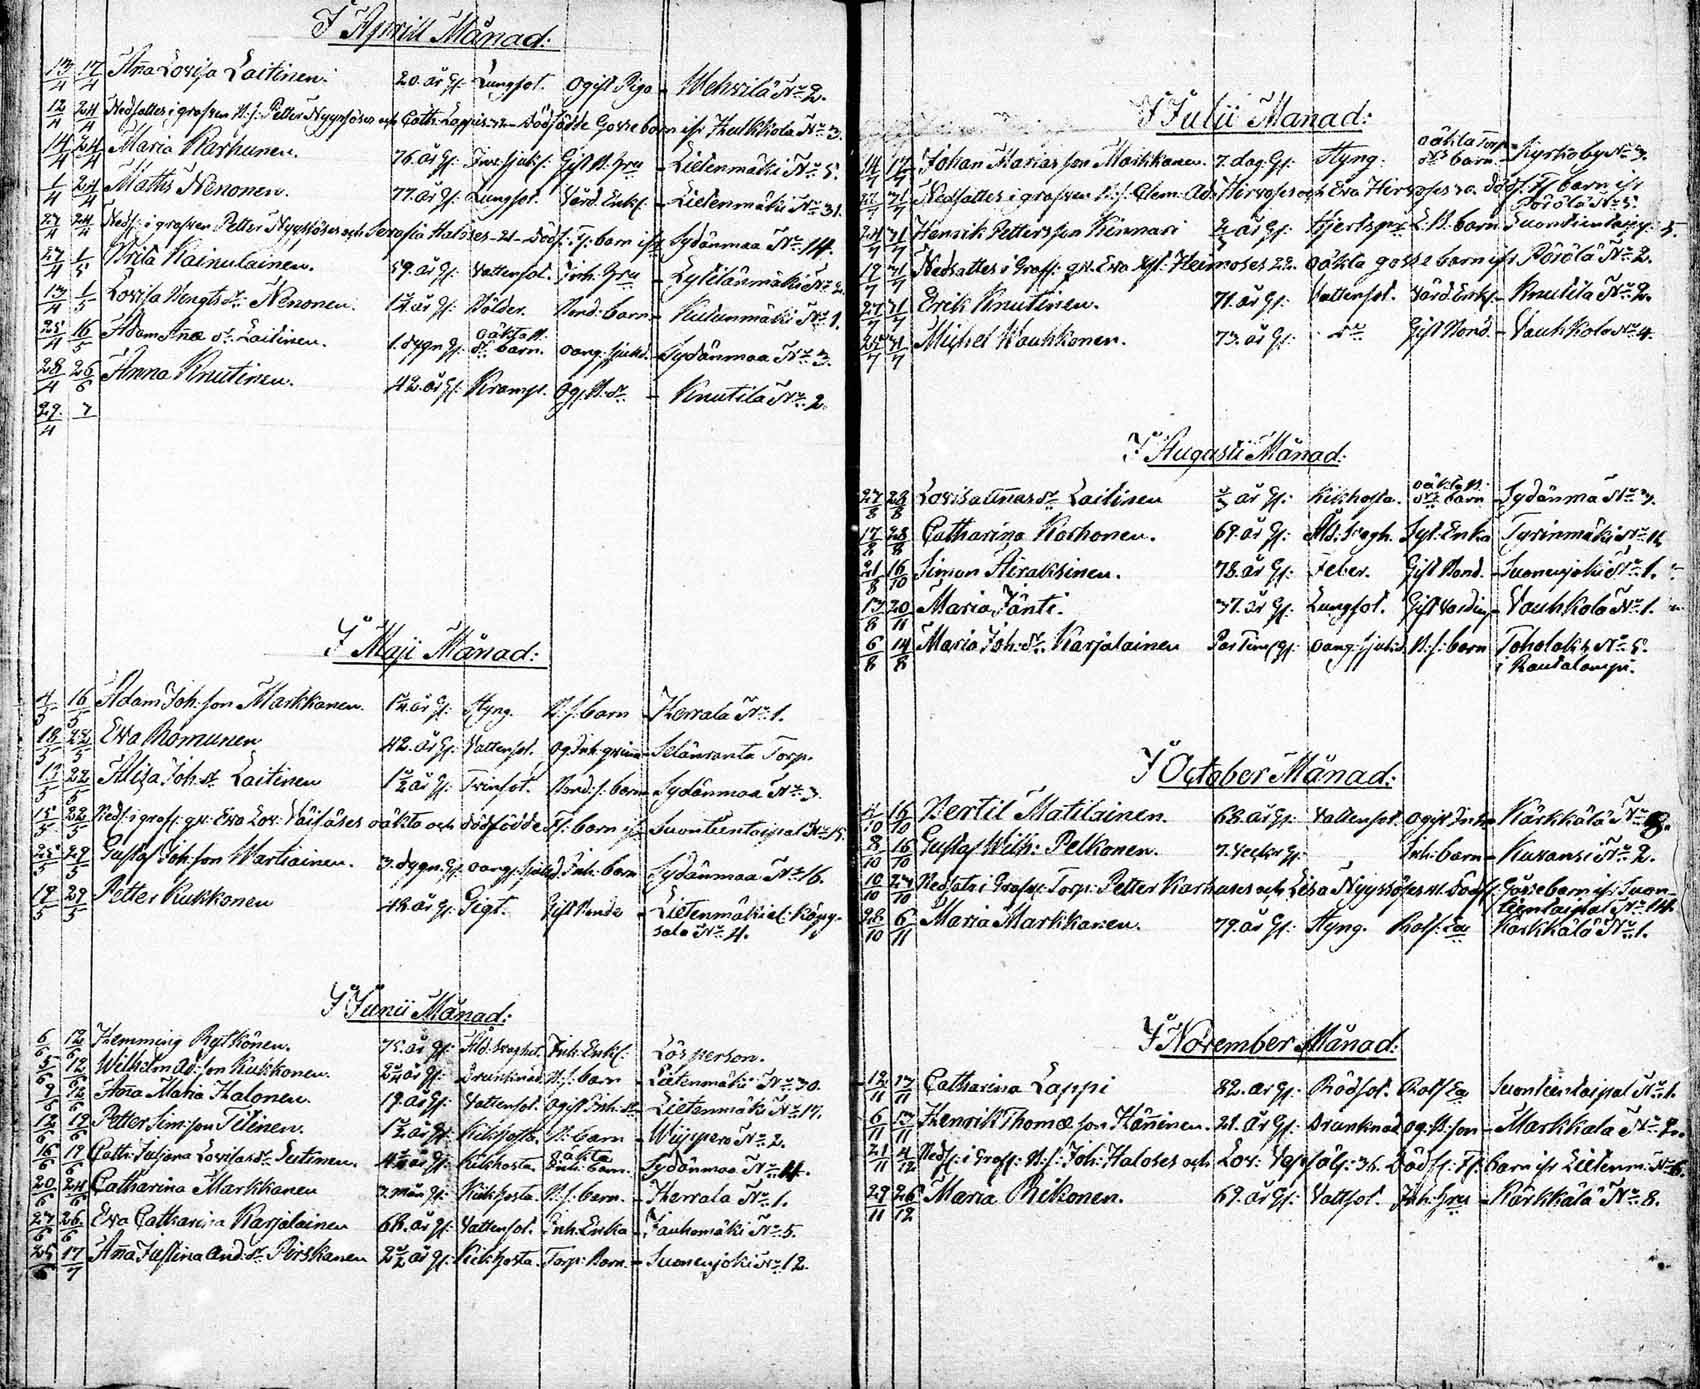 I Aprill Månad:
13/4 17/4 Aña Lovisa Laitinen. 20. år Gl: Lungsot. Ogift Piga - Wehvilä No 2.
12/4 24/4 Nedsattes i grafven Petter Nyyssöses och Cath: Lappis dödfödde Gossebarn ifr Hulkkola No 3.
14/4 24/4 Maria Karhunen. 76. år Gl: Gift Hru - Lietenmäki No 5.
1/4 24/4 Matts Nenonen. 77. år Gl: Lungsot. Värd. Enkl. - Lietenmäki No 31.
24/4 Neds: i grafven Petter Nyyssöses och Serafia Halses 21 - Dödf: Fl: barn ifr Sydänmaa No 14.
27/4 1/5 Brita Kainulainen. 59. år Gl: Vattensot. Inh: Hru - Lyytilänmäki No 2.
13/4 1/5 Lovisa Bengts dr Nenonen. år Gl: Bölder. Bond: barn - Kutunmäki No 1.
25/4 16/5 Adam Añæ Laitinen. 1. dygn Gl: oäkta barn. oang: sjukd. - Sydänmaa No 3.
28/4 26/6 Anna Knutinen. 42. år Gl: Kramp. Og: B: dr - Knutila No 2.
29/4 7
I Maji Månad:
4/5 16/5 Adam Joh: son Markkanen. år Gl: Styng. B: s: barn - Herrala No 1.
18/5 22/5 Eva Romunen 42. år Gl: Vattensot. Og Inh: qvinna - Selänranta Torp.
17/5 22/5 Alisa Joh: dr Laitinen 1 1/2 år Gl: Tvinsot. Bond: s: barn - Sydänmaa No 3.
15/5 22/5 Neds: i graf: qv: Eva Lov: Väisäses oäkta och dödfödde Fl: barn ifr Suontientaipal No 15.
25/5 29/5 Gustaf Joh: son Wartiainen. 3. dygn Gl: oang: sjukd. Inh: barn Sydänmaa No 16.
19/5 29/5 Petter Kukkonen 48. år Gl: Gigt. Gift Bonde - Lietenmäki el: Käpysalo No 4.
I Junii Månad:
6/6 12/6 Hemming Rytkönen. 75. år Gl: Åld: svaghet. Inh: Enkl: Lös person.
5/6 12/6 Wilhelm Ad: son Kukkonen. år Gl: Drunknad. B: s: barn - Lietenmäki No 30.
9/6 12/6 Aña Maria Halonen. 19. år Gl: Vattensot. Ogift Inh: dr - Lietenmäki No 17.
12/6 19/6 Petter Sim: son Tilinen. 1 1/2 år Gl: Kikhosta. B: barn - Wiippero No 2.
16/6 19/6 Cath: Juliana Lovisas dr Lutinen. år Gl: Kikhosta. oäkta Inh: barn. Sydänmaa No 4.
20/6 24/6 Catharina Markkanen 3 mån Gl: Kikhosta. B: s: barn. - Herrala No 1.
27/6 26/6 Eva Catharina Karjalainen 68. år Gl: Vattensot. Inh: Enka - Jauhomäki No 5.
25/6 17/7 Aña Justina And: dr Pirskanen 2 1/2 år Gl: Kikhosta. Torp: Barn. - Suonenjoki No 12.
I Julii Månad:
14/7 17/7 Johan Marias son Markkanen. 7. dag. Gl: Styng. oäkta Torp: drs barn. Kyrkoby No 3.
22/7 31/7 Nedsattes i grafven Clem: Ad: Hirvoses och Eva Hirvoses dödf: Fl: barn ifr Pörölä No 5.
24/7 31/7 Henrik Petters son Kinnari år Gl: Hjertspr: barn Suontientaipal 5.
19/7 31/7 Nedsattes i Graff: qv: Eva Heimoses 22. oäkta gosse barn ifr Pörölä No 2.
27/7 31/7 Erik Knutinen. 71. år Gl: Vattensot. Värd: Enkl. - Knutila No 2.
25/7 31/7 Michel Kauhkonen. 73. år Gl: do Gift Bond. - Vauhkola No 4.
I Augusti Månad:
27/8 28/8 Lovisa Annas dr Laitinen år Gl: Kikhosta. oäkta B: drs barn - Sydänma No 3.
17/8 28/8 Catharina Korhonen. 69. år Gl: Åld: svagh. Syt: Enka - Tyrinmäki No 11.
21/8 16/10 Simon Airaksinen. 78. år Gl: Feber. Gift Bond. - Suonenjoki No 1.
13/8 20/11 Maria Jänti. 37. år Gl: Lungsot. Gift Värdin - Vauhkola No 1.
6/8 14/8 Maria Joh: dr Karjalainen Par Tim: Gl: oang: sjukd. B: s: barn Toholaks No 5.
i Rautalampi.
I October Månad:
4/10 16/10 Bertil Matilainen. 68. år Gl: Vattensot. Ogift Inh. Kärkkälä No 8.
8/10 16/10 Gustaf Wilh: Pelkonen. 7. Veckor Gl: Inh: barn - Kuvansi No 2.
10/10 27/10 Nedsats i Graf: Torp: Petter Karhuses och Lisa Nyyssöses Dödf: Gossebarn ifr Suontientaipal No 14.
28/10 6/11 Maria Markkanen. 79. år Gl: Styng. Rotf: Ea Kärkkälä No 1.
I November Månad:
12/11 13/11 Catharina Lappi 82. år Gl: Rödsot. Rotf: Ea Suontientaipal No 1.
6/11 13/11 Henrik Thomæ son Häninen. 21. år Gl: Drunknad og: B: son - Markkala No 2.
21/11 4/12 Neds: i Graff: B: s: Joh: Haloses och Lov: 36. Dödff: Fl: barn ifr Lietenm: No 6.
29/11 26/12 Maria Rikonen. 69. år Gl: Vattsot. Inh: Hru - Kärkkälä No 8.